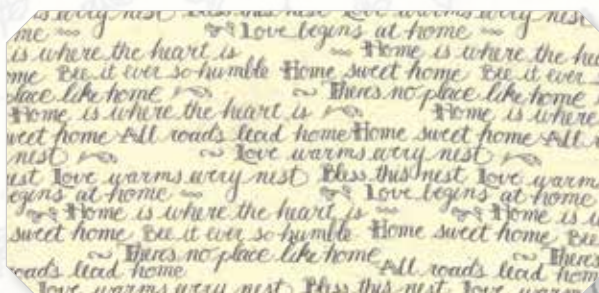 warms every nest Bless this nest Love warms every nest
me Love begins at home
is where the heart is Home is where the hea
me Bee it ever so humble Home sweet home Bee it ever s
place like home Theres no place like home
Home is where the heart is Home is where
weet home All roads lead home Home sweet home All r
nest Love warms every nest
est Love warms every nest Bless this nest Love warms
egins at home Love begins at home
Home is where the heart is Home is w
sweet home Bee it ever so humble Home sweet home Bee
Theres no place like home Theres
roads lead home All roads lead hom
Love warms every nest Bless this nest Love warms